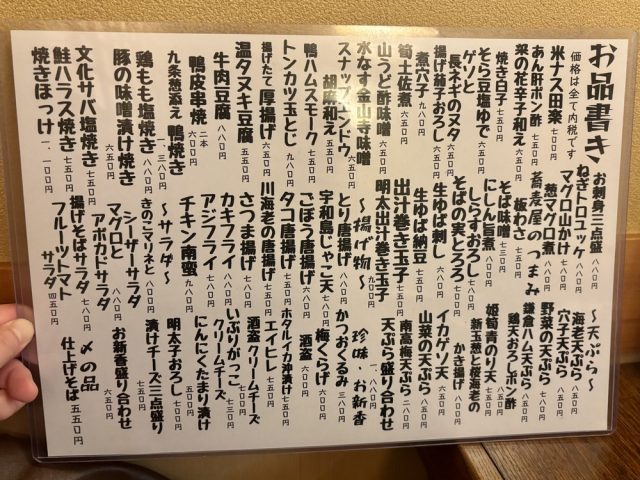 お品書き
価格は全て内税です
米ナス田楽 七五〇円
あん肝ポン酢 七五〇円
菜の花辛子和え 六五〇円
焼き白子 七五〇円
そら豆塩ゆで 六五〇円
ゲソと
長ネギのヌタ 六五〇円
揚げ茄子おろし 六五〇円
煮穴子 九八〇円
筍土佐煮 六五〇円
山うど酢味噌
水なす金山寺味噌
スナップエンドウ
胡麻和え 五五〇円
鴨ハムスモーク 七五〇円
トンカツ玉とじ 九八〇円
揚げたて厚揚げ 六五〇円
温タヌキ豆腐 五五〇円
牛肉豆腐 八八〇円
鴨皮串焼 二本 六六〇円
九条葱添え 鴨焼き 一、三八〇円
鶏もも塩焼き 八八〇円
豚の味噌漬け焼き
文化サバ塩焼き 七五〇円
鮭ハラス焼き 七五〇円
焼きほっけ 一、一〇〇円
お刺身三点盛
ねぎトロユッケ 八八〇円
マグロ山かけ 八八〇円
葱マグロ煮 八八〇円
〜蕎麦屋のつまみ
板わさ 五五〇円
そば味噌 七三〇円
にしん旨煮
しらすおろし 七五〇円
そばの実とろろ 五〇〇円
生ゆば刺し 七五〇円
生ゆば納豆 七五〇円
出汁巻き玉子
明太出汁巻き玉子
〜揚げ物〜
とり唐揚げ 八八〇円
宇和島じゃこ天 七八〇円
ごぼう唐揚げ 六八〇円
タコ唐揚げ 七五〇円
川海老の唐揚げ 七五〇円
さつま揚げ 七五〇円
カキフライ 八八〇円
アジフライ
チキン南蛮 九八〇円
〜サラダ〜
きのこマリネと
シーザーサラダ
マグロと
アボカドサラダ
揚げそばサラダ 七八〇円
フルーツトマト
サラダ 四五〇円
〜天ぷら〜
海老天ぷら
穴子天ぷら
野菜の天ぷら 七八〇円
鎌倉ハム天ぷら 八五〇円
鶏天おろしポン酢
姫筍青のり天 七五〇円
新玉葱と桜海老の
かき揚げ 八〇〇円
イカゲソ天 七五〇円
山菜の天ぷら 八五〇円
南高梅天ぷら 二八〇円
天ぷら盛り合わせ 一、八八〇円
珍味・お新香
かつおくるみ 三八〇円
梅くらげ 六〇〇円
酒盗 六〇〇円
ホタルイカ沖漬け 七五〇円
エイヒレ 七五〇円
酒盗クリームチーズ
いぶりがっこ 七三〇円
クリームチーズ
にんにくたまり漬け 五〇〇円
明太子おろし 七〇〇円
漬けチーズ三点盛り
お新香盛り合わせ 六五〇円
〆の品
仕上げそば 五五〇円